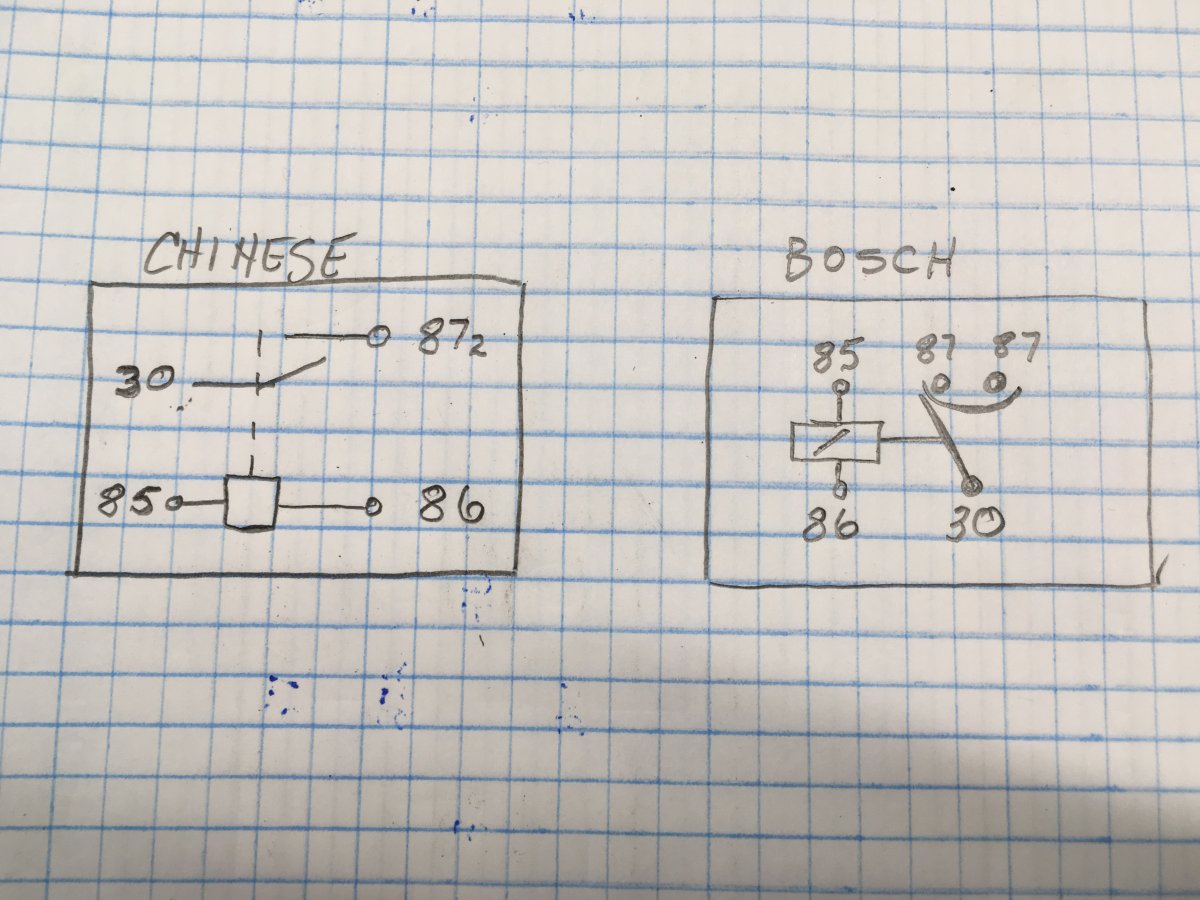 CHINESE
30
87₂
85
86
BOSCH
85 87 87
86 30